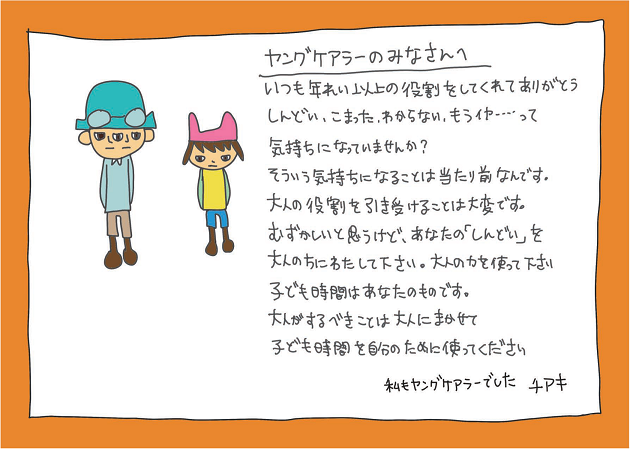 ヤングケアラーのみなさんへ
いつも年れい以上の役割をしてくれてありがとう
しんどい、こまった、わからない、もうイヤ……って
気持ちになっていませんか?
そういう気持ちになることは当たり前なんです。
大人の役割を引き受けることは大変です。
むずかしいと思うけど、あなたの「しんどい」を
大人のちにわたして下さい。大人の力を使って下さい
子ども時間はあなたのものです。
大人がするべきことは大人にまかせて
子ども時間を自分のために使ってください
私もヤングケアラーでした チアキ